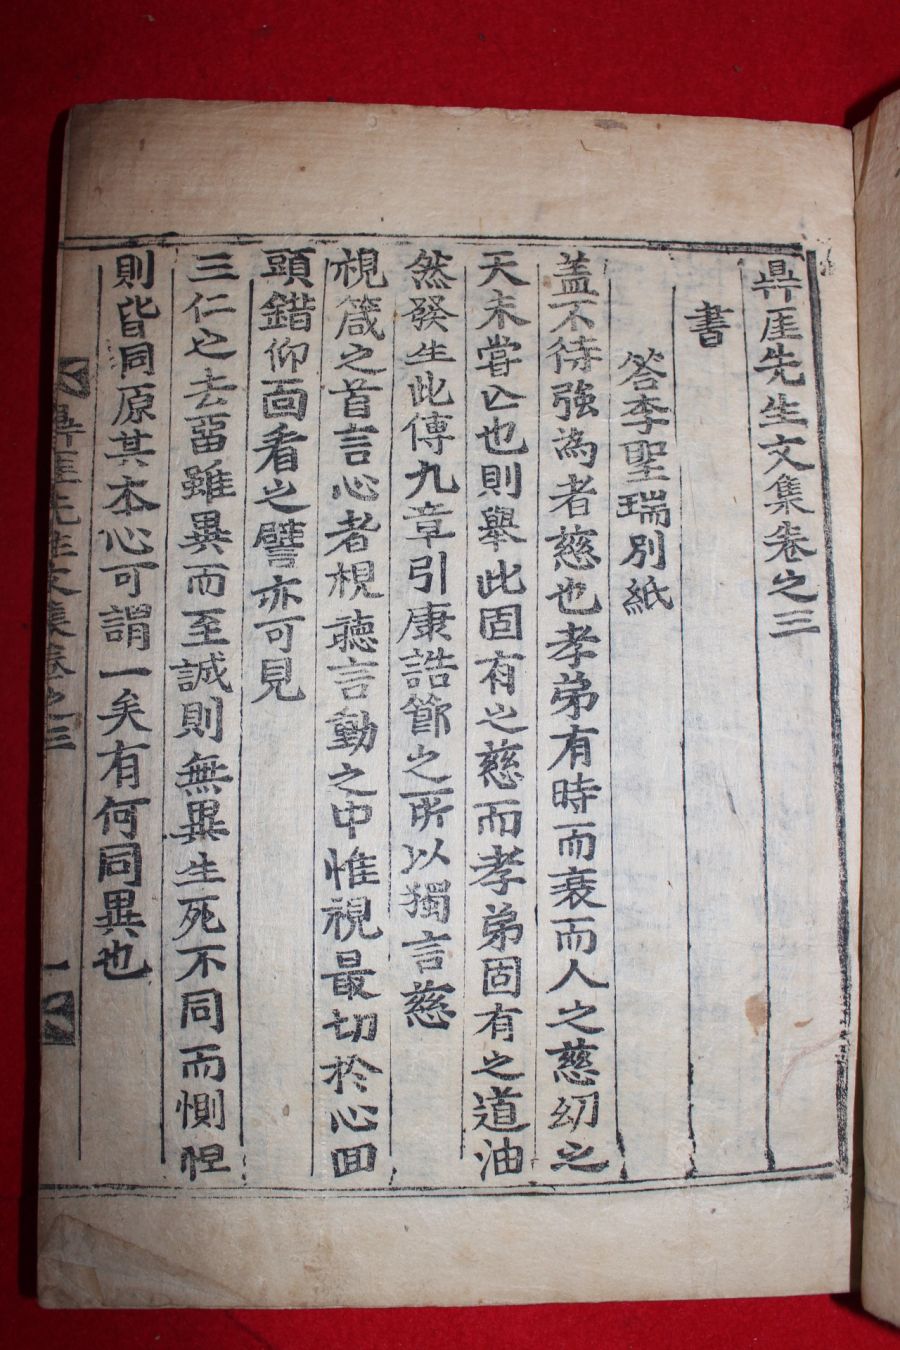 鼎厓先生文集卷之三
書
答李聖瑞別紙
盖不待強為者慈也孝弟有時而衰而人之慈幼之
天未嘗亾也則舉此固有之慈而孝弟固有之道油
然發生此傳九章引康誥節之所以獨言慈
視箴之首言心者視聽言動之中惟視最切於心回
頭錯仰面看之譬亦可見
三仁之去留雖異而至誠則無異生死不同而惻怛
則皆同原其本心可謂一矣有何同異也
鼎厓先生文集卷之三 一